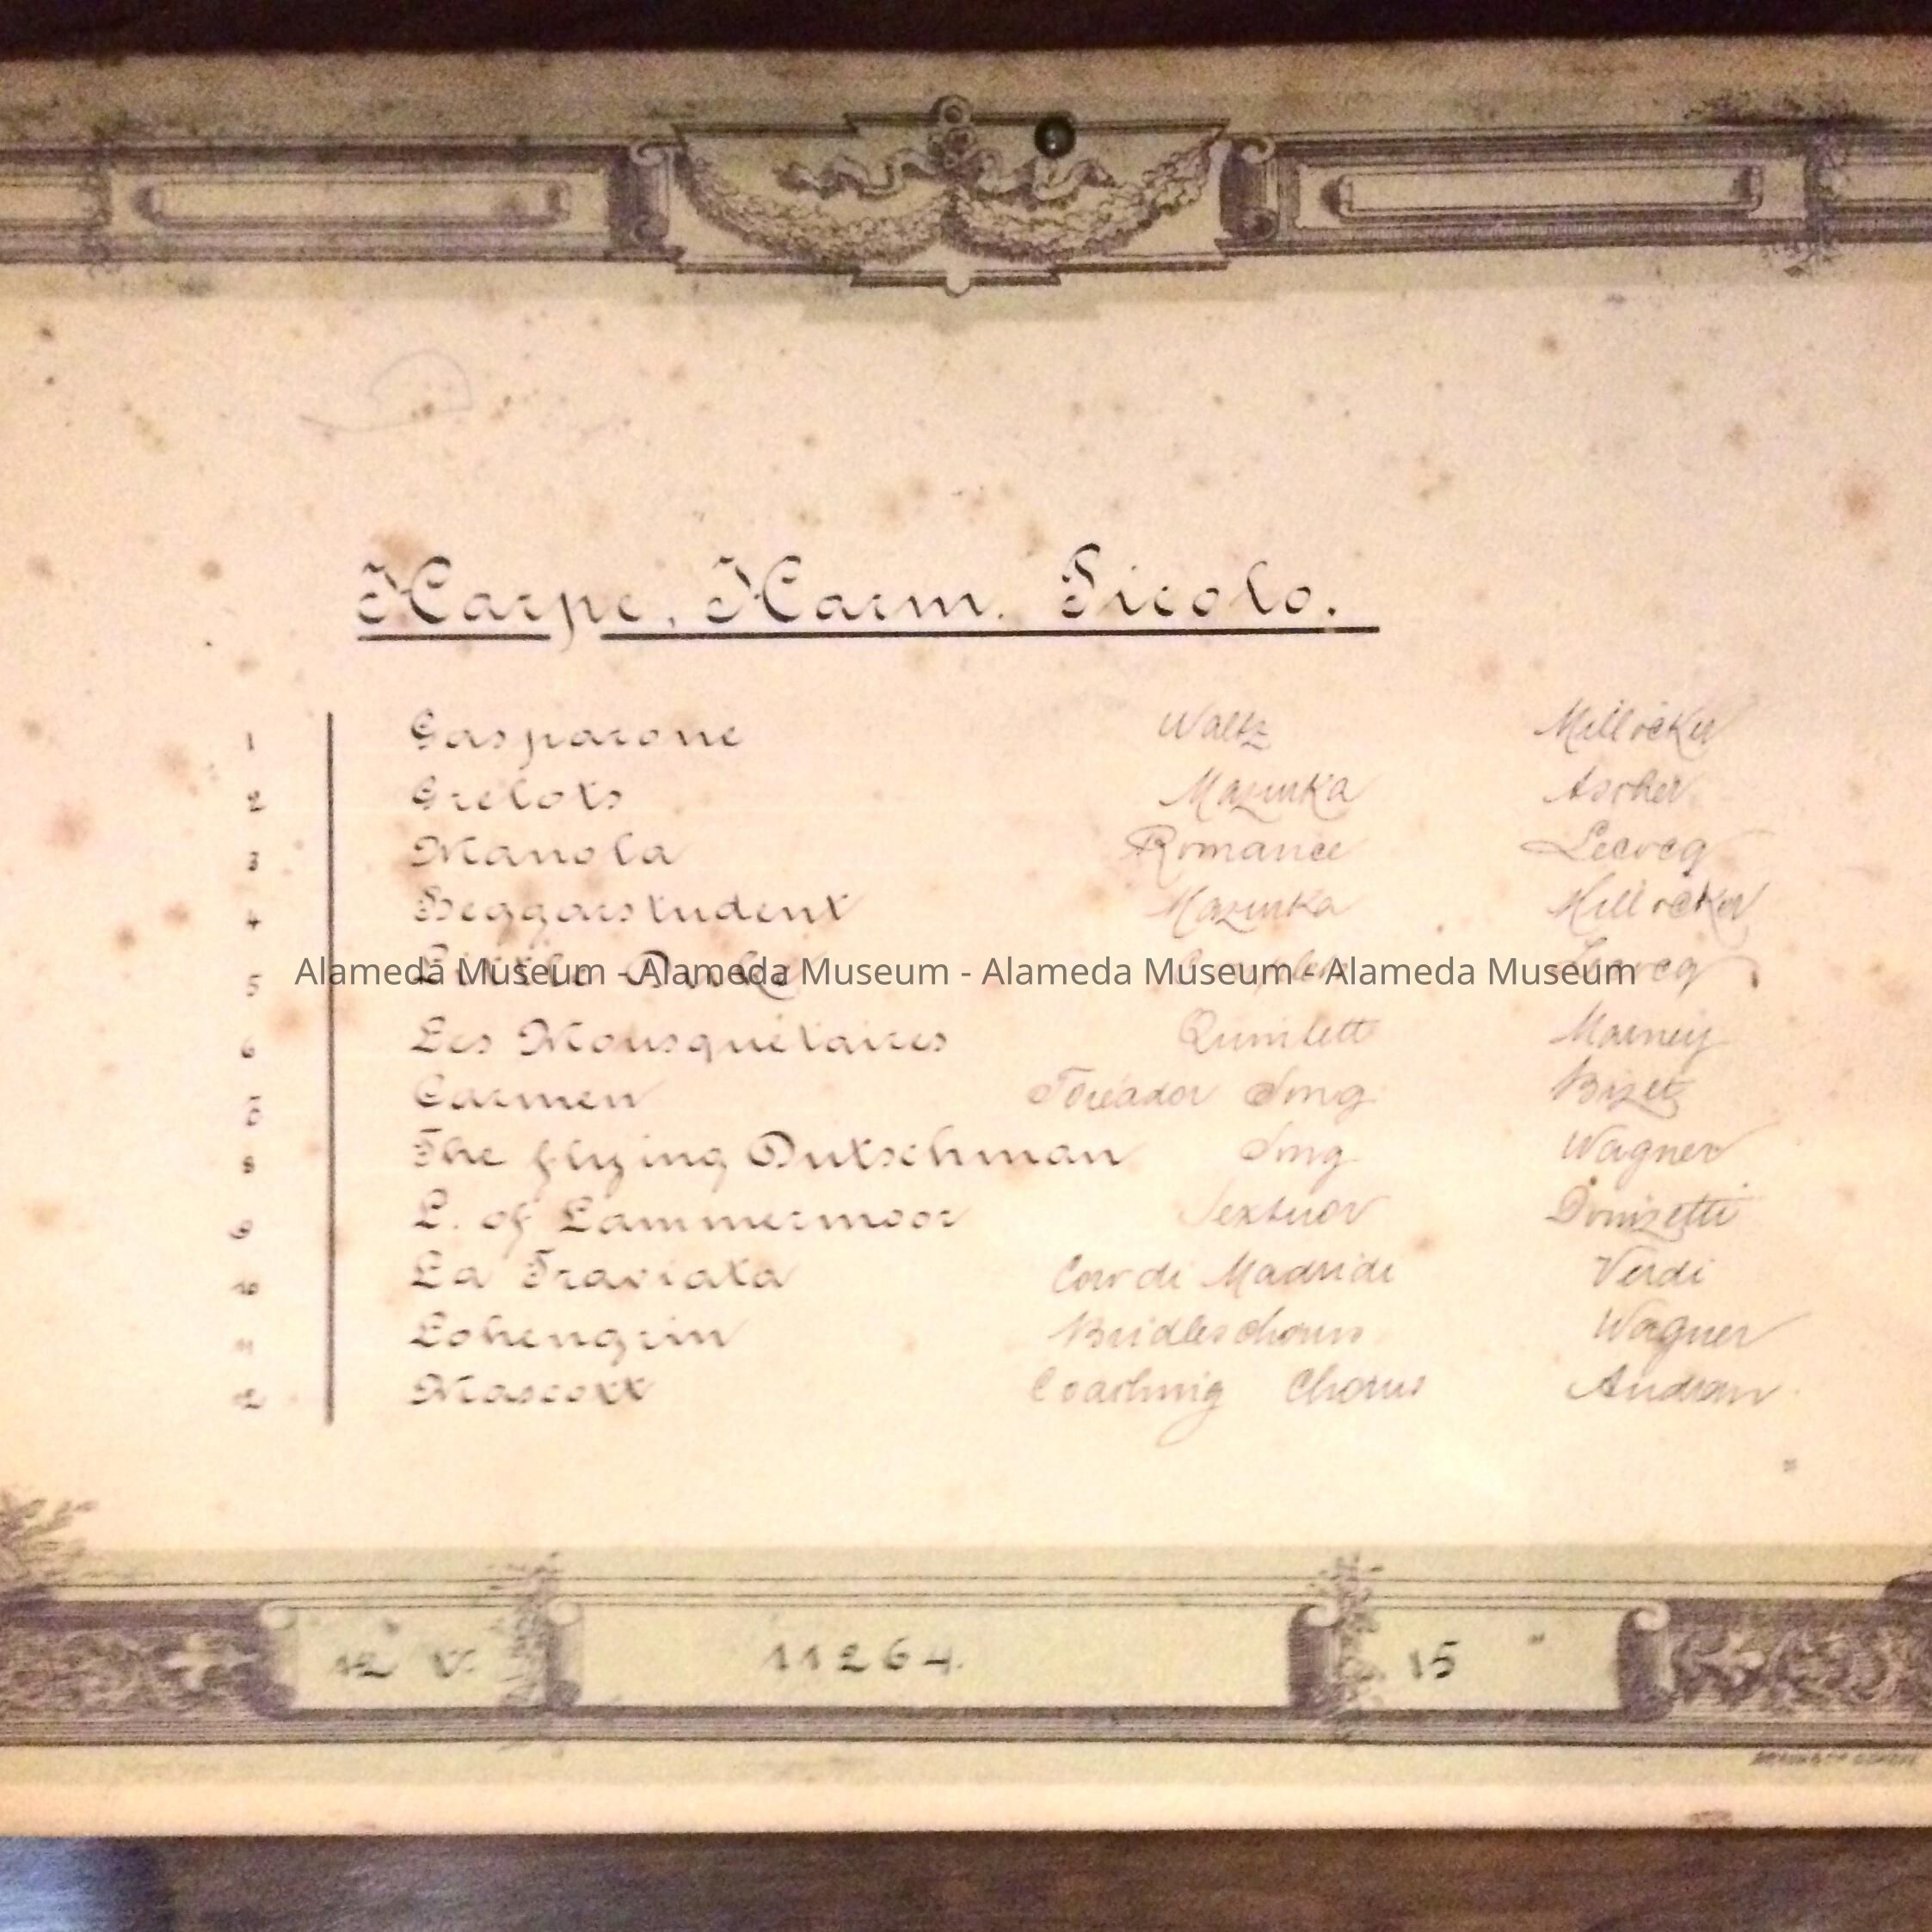 Harpe, Harm. Picolo.
1 Gasparone Waltz Millöcker
2 Grelots Mazurka Ascher
3 Manola Romance Lecocq
4 Beggarstudent Mazurka Millöcker
5 Little Duke Lecocq
Alameda Museum - Alameda Museum - Alameda Museum - Alameda Museum
6 Les Mousquetaires Quintett
7 Carmen Toréador Song Bizet
8 The flying Dutschman Song Wagner
9 L. of Lammermoor Sextuor Donizetti
10 La Traviata Cor di Madride Verdi
11 Lohengrin Bridleschorus Wagner
12 Mascott Coaching Chorus Audran
12 V. 11264. 15 "